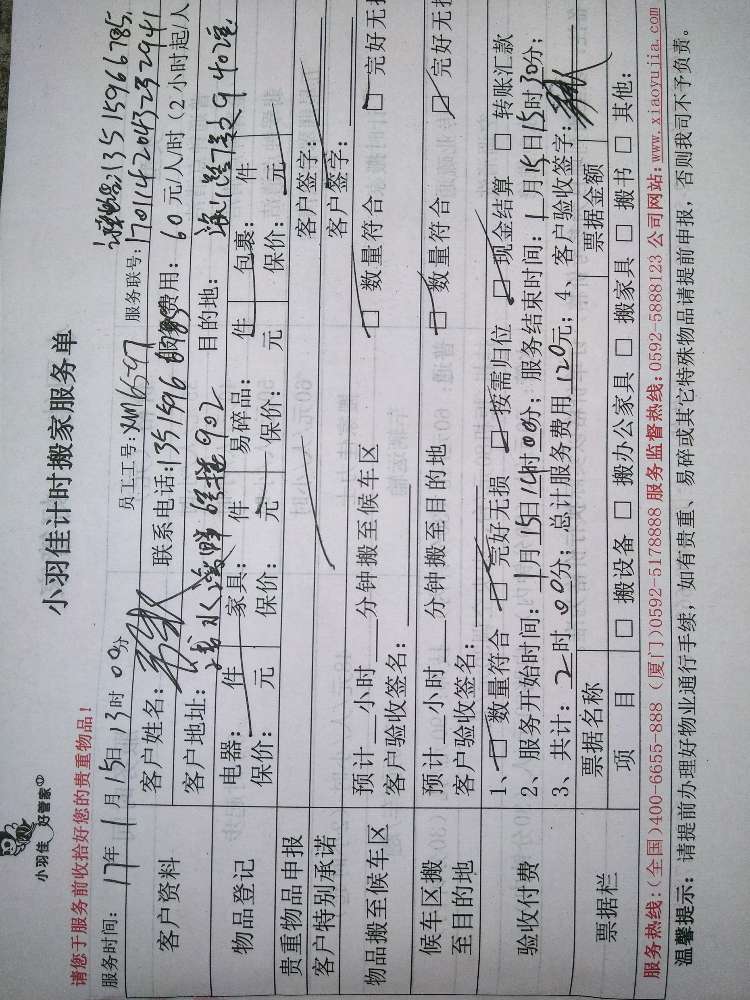 小羽佳 好管家
小羽佳计时搬家服务单
请您于服务前收拾好您的贵重物品!
13515966785
服务时间: 17年 1月15日13时00分 员工工号: XM6597 服务联号: 170114204323 2941
客户资料 客户姓名: 联系电话: 1351596 服务费用: 60元/人/时(2小时起/人
客户地址: 902 目的地:
物品登记 电器: 件 家具: 件 易碎品: 件 包裹: 件
保价: 元 保价: 元 保价: 元 保价: 元
贵重物品申报 客户签字:
客户特别承诺 客户签字:
物品搬至候车区 预计 小时 分钟搬至候车区 □ 数量符合 □ 完好无损
客户验收签名:
候车区搬至目的地 预计 小时 分钟搬至目的地 □ 数量符合 □ 完好无损
客户验收签名:
验收付费 1、□ 数量符合 □ 完好无损 □ 按需归位 □ 现金结算 □ 转账汇款
2、服务开始时间: 1月15日14时00分; 服务结束时间: 1月15日15时30分;
3、共计: 2时00分; 总计服务费用120元; 4、客户验收签字:
票据栏 票据名称 票据金额
项 目 □ 搬设备 □ 搬办公家具 □ 搬家具 □ 搬书 □ 其他:
服务热线:(全国)400-6655-888 (厦门)0592-5178888 服务监督热线: 0592-5888123 公司网站: www.xiaoyujia.com
温馨提示: 请提前办理好物业通行手续, 如有贵重、易碎或其它特殊物品请提前申报, 否则我司不予负责。